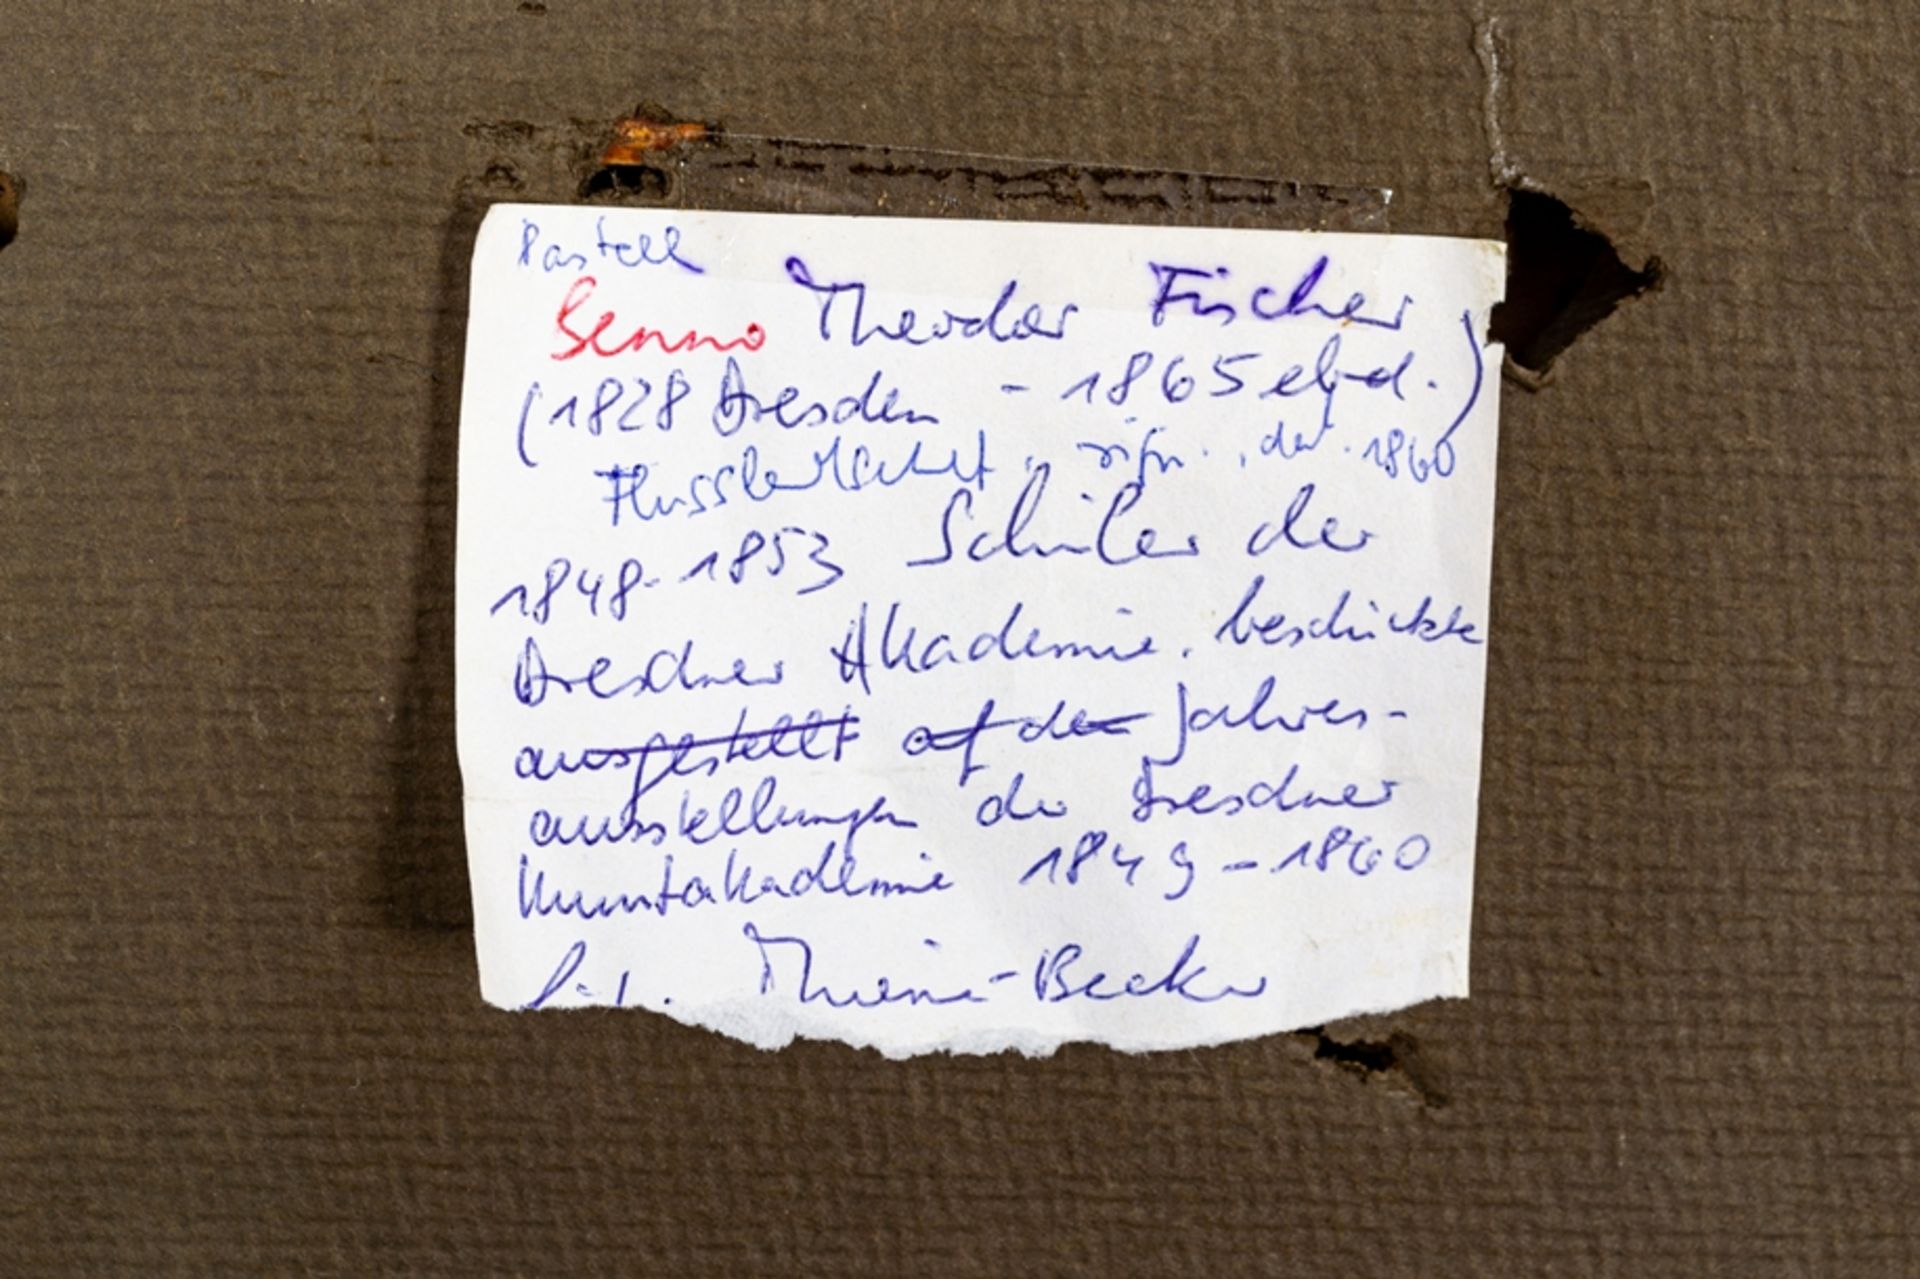 Pastell
Benno Theodor Fischer
(1828 Dresden - 1865 ebd.)
Flusslandschaft, sign., dat. 1860
1848-1853 Schüler der
Dresdner Akademie. beschickte
ausgestellt auf der Jahres-
ausstellungen der Dresdner
Kunstakademie 1849-1860
Thieme-Becker